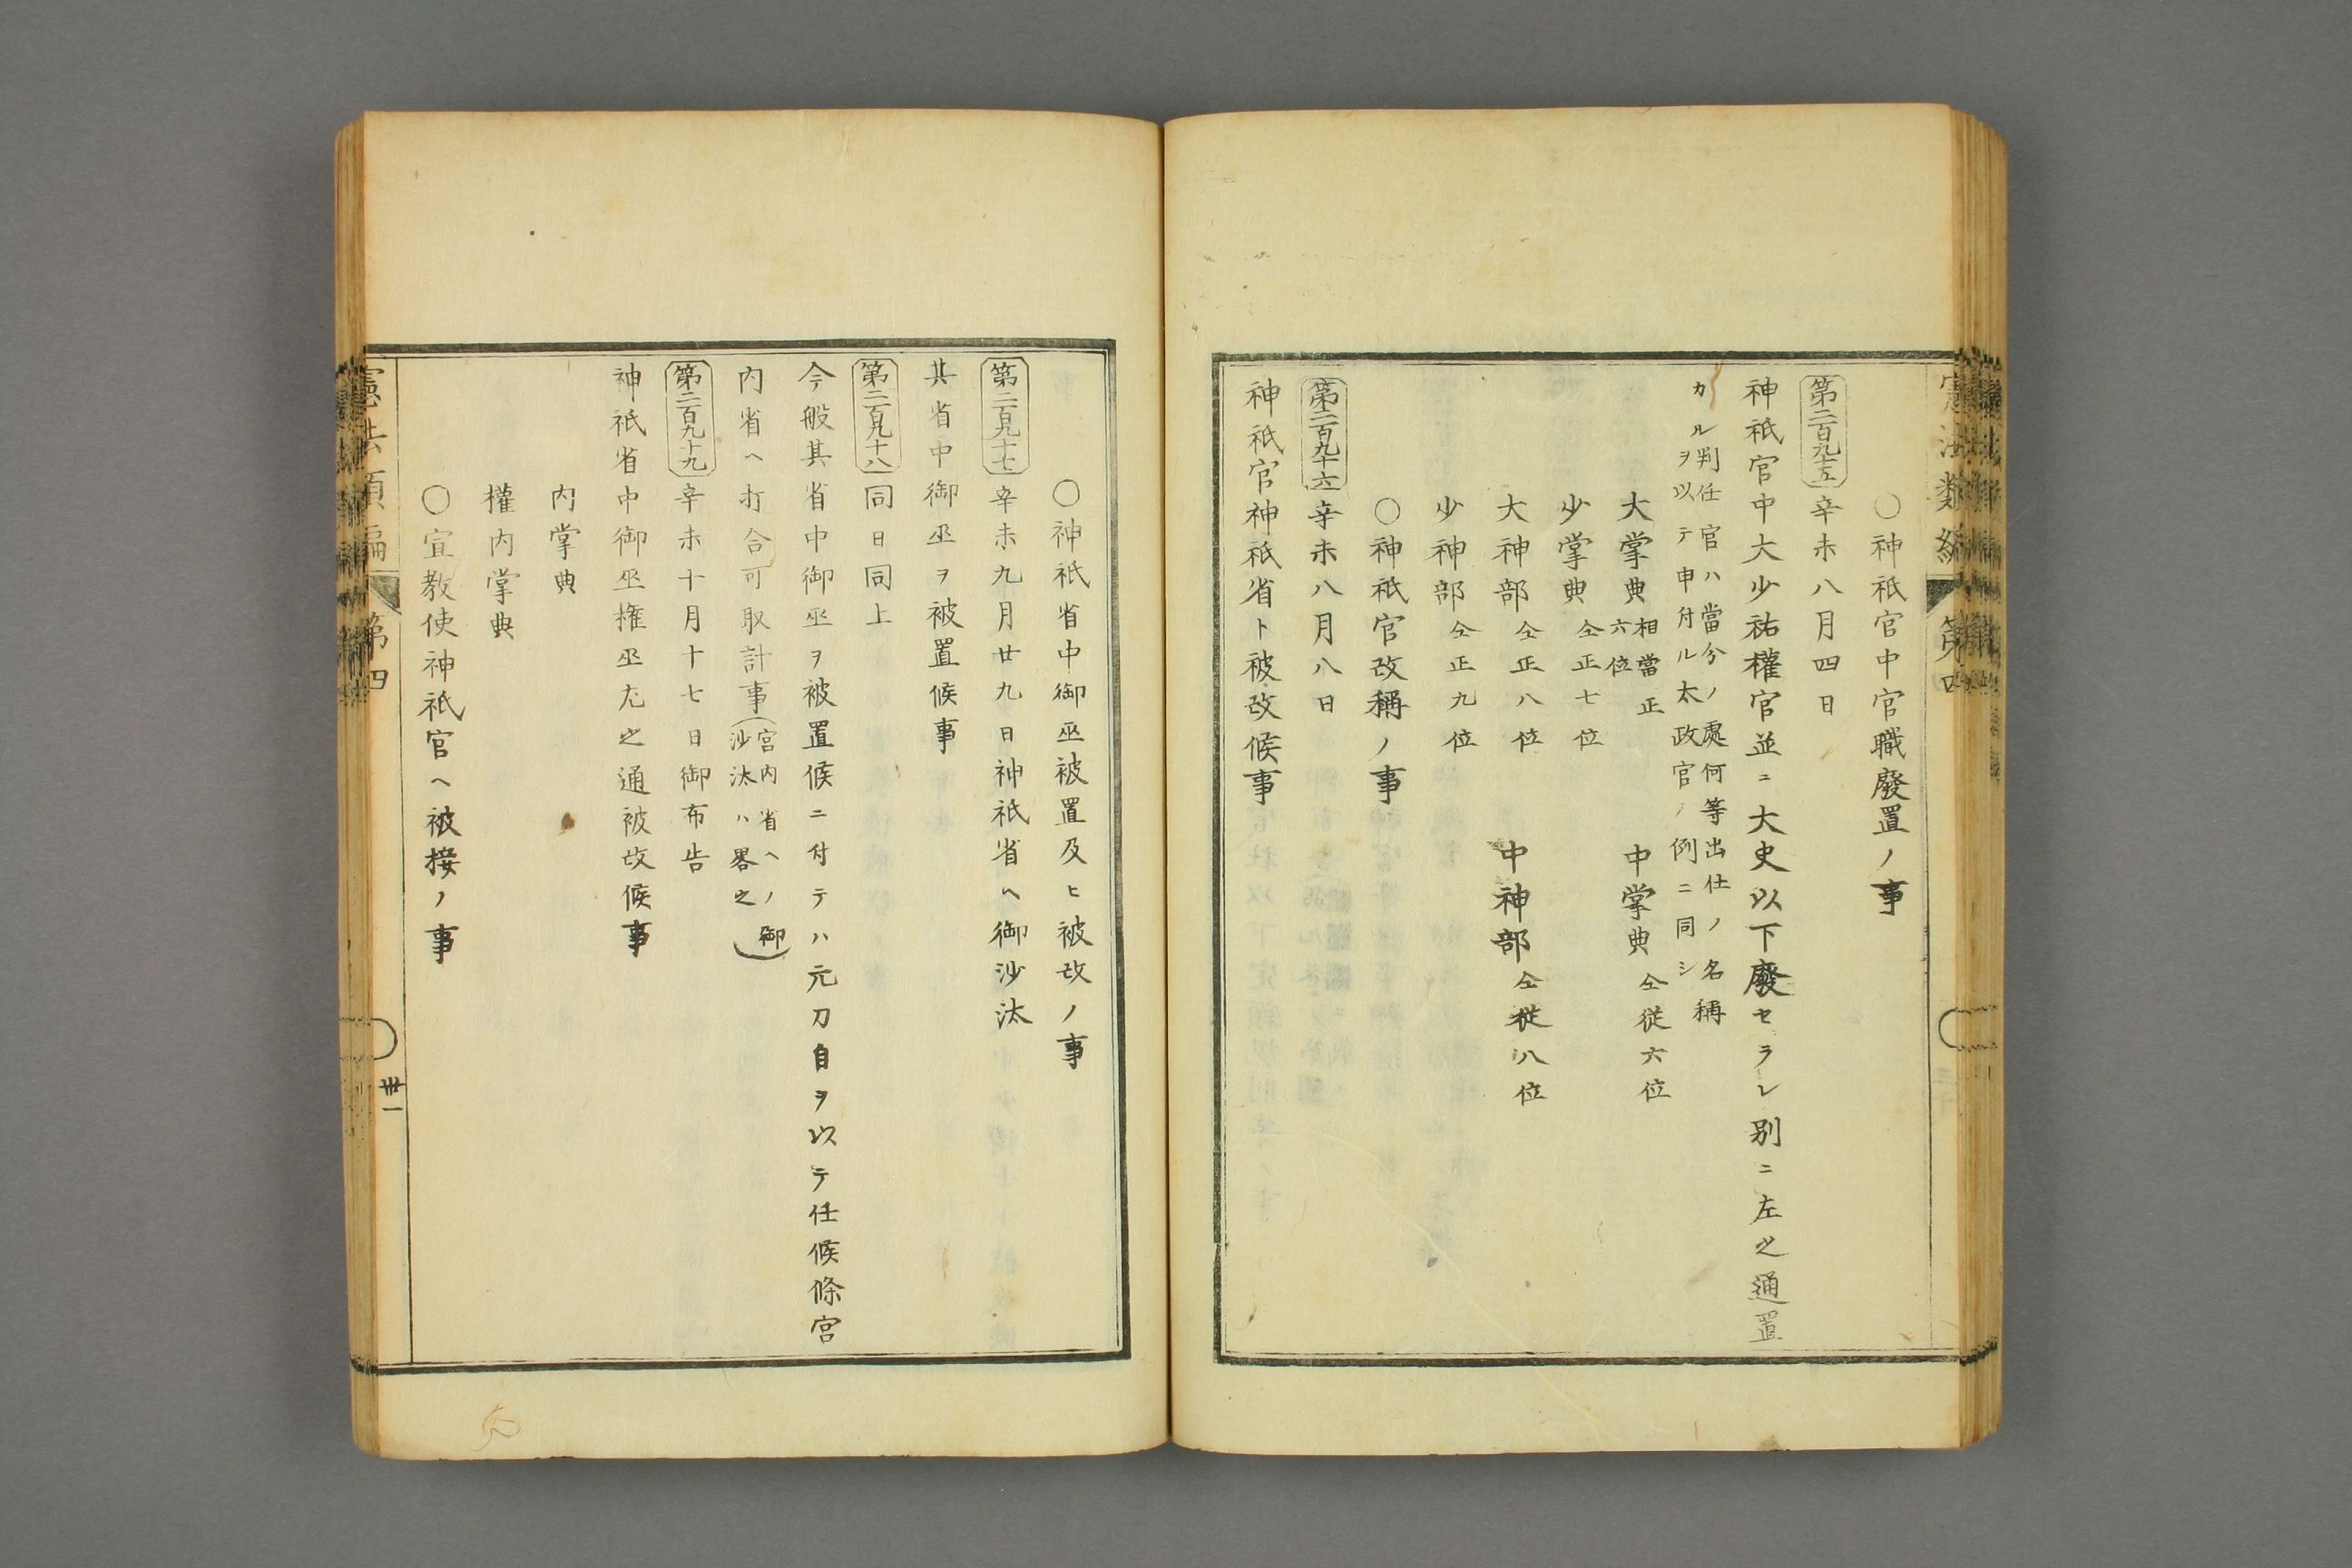 憲法類編 第四
○神祇官中官職廢置ノ事
第二百九十五 辛未八月四日
神祇官中大少祐權官並ニ大史以下廢セラレ別ニ左之通置
カル判任官ハ當分ノ處何等出仕ノ名稱
ヲ以テ申付ル太政官ノ例ニ同シ
大掌典 相當正六位 中掌典 仝従六位
少掌典 仝正七位
大神部 仝正八位 中神部 仝従八位
少神部 仝正九位
○神祇官改稱ノ事
第二百九十六 辛未八月八日
神祇官神祇省ト被改候事
○神祇省中御巫被置及ヒ被改ノ事
第二百九十七 辛未九月廿九日神祇省ヘ御沙汰
其省中御巫ヲ被置候事
第二百九十八 同日同上
今般其省中御巫ヲ被置候ニ付テハ元刀自ヲ以テ任候條宮
内省ヘ打合可取計事(宮内省ヘノ御
沙汰ハ畧之)
第二百九十九 辛未十月十七日御布告
神祇省中御巫権巫左之通被改候事
内掌典
權内掌典
○宣教使神祇官ヘ被接ノ事
憲法類編 第四 卅一